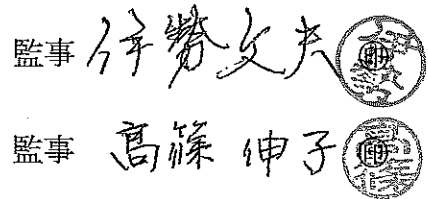 監事 伊勢文夫 印
監事 高篠 伸子 印